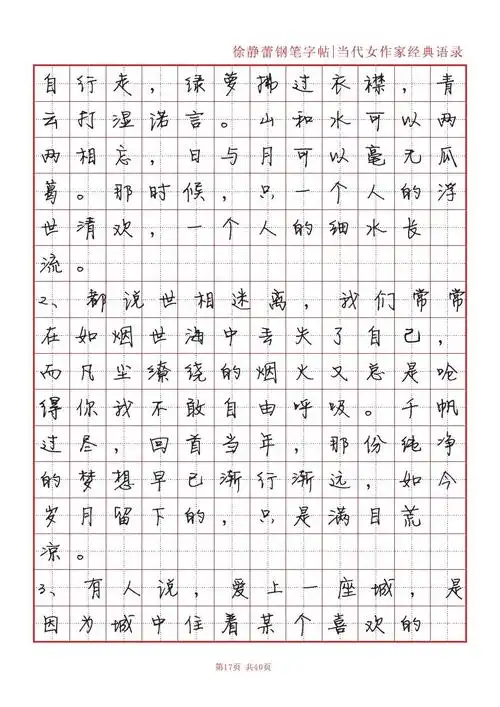 徐静蕾钢笔字帖|当代女作家经典语录
自行走，绿萝拂过衣襟，青
云打湿诺言。山和水可以两
两相忘，日与月可以毫无瓜
葛。那时候，只一个人的浮
世清欢，一个人的细水长
流。
2、都说世相迷离，我们常常
在如烟世海中丢失了自己，
而凡尘缭绕的烟火又总是呛
得你我不敢自由呼吸。千帆
过尽，回首当年，那份纯净
的梦想早已渐行渐远，如今
岁月留下的，只是满目荒
凉。
3、有人说，爱上一座城，是
因为城中住着某个喜欢的
第17页 共40页